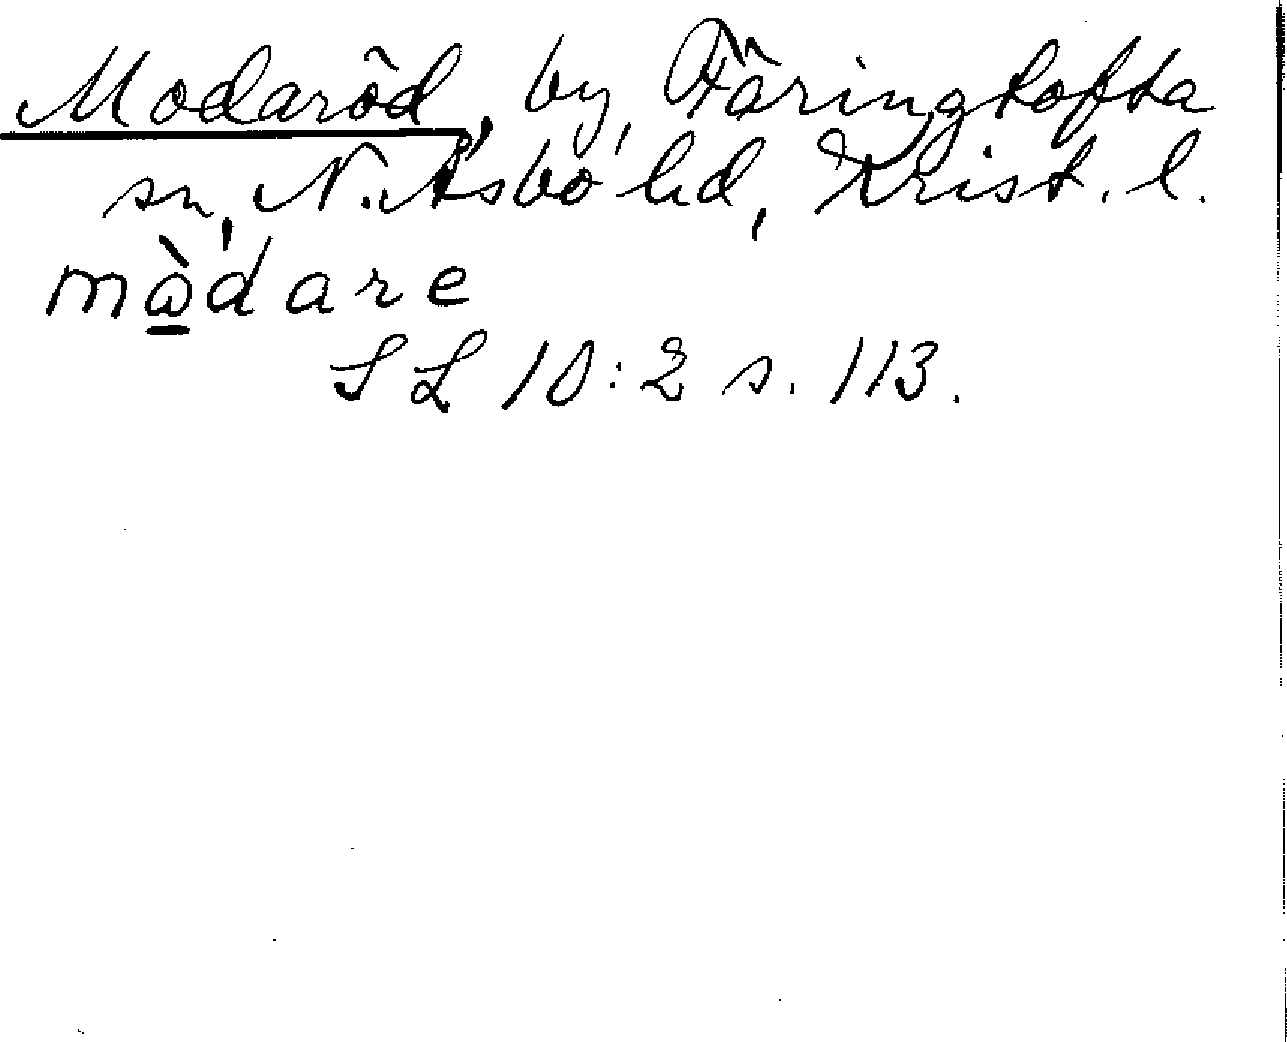 Modaröd, by, Färingtofta
sn, N. Åsbo hd, Krist. l.
mὼ̲dare
SL 10:2 s. 113.